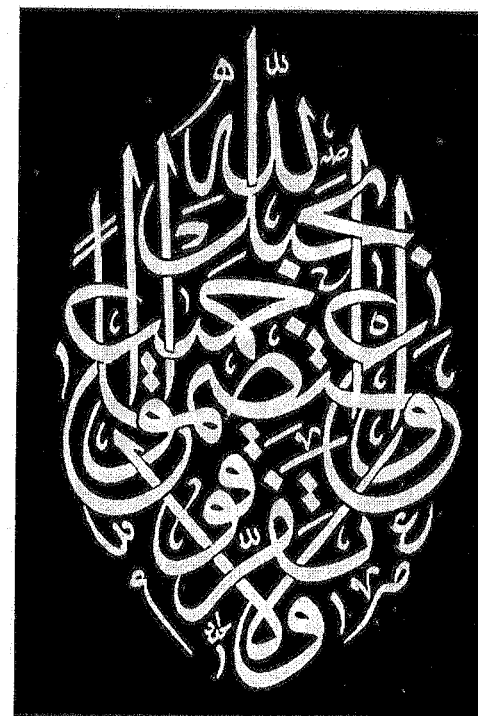 واعتصموا بحبل الله جميعًا ولا تفرقوا